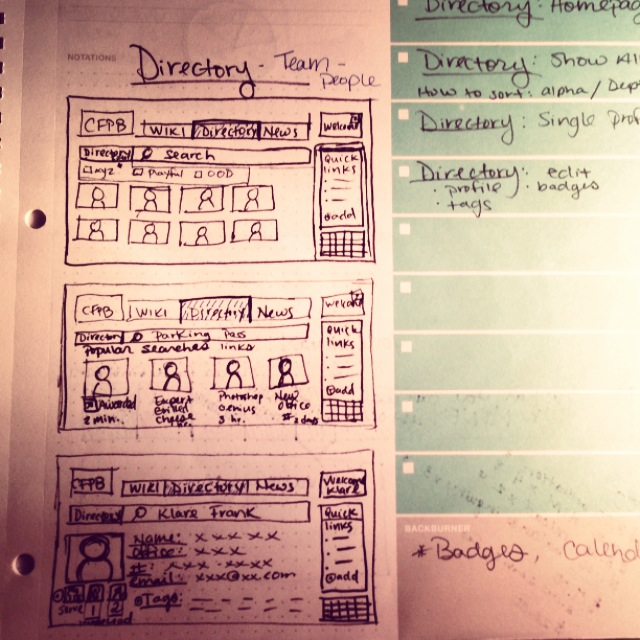 NOTATIONS
Directory - Team -
People
CFPB WIKI Directory News Welcome
Directory search
xyz Playful OOD
Quick
links
@add
CFPB WIKI Directory News Welcome
Directory Parking Pas
Popular searches links
Quick
links
@add
Awarded
2 min.
Expert
grilled
cheese
Photoshop
genius
3 hr.
New
office
# 2 days
CFPB WIKI Directory News Welcome
Klare
Directory Klare Frank
Quick
links
@add
Name: x x x x x
Office: x x x
#: xxx - xxxx
email: xxx@xx.com
Tags:
1 2
Directory: Homepag
Directory: Show All
How to sort: alpha/Dep
Directory: Single prof
Directory: edit
· profile · badges
· tags
BACKBURNER
*Badges, Calend